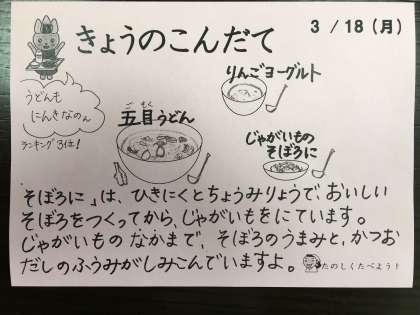 きょうのこんだて
3 / 18 (月)
うどんも
にんきなのん
ランキング3位!
りんごヨーグルト
ご もく
五目うどん
じゃがいもの
そぼろに
そぼろに」は、ひきにくとちょうみりょうで、おいしい
そぼろをつくってから、じゃがいもをにています。
じゃがいものなかまで、そぼろのうまみと、かつお
だしのふうみがしみこんでいますよ。
たのしくたべよう!